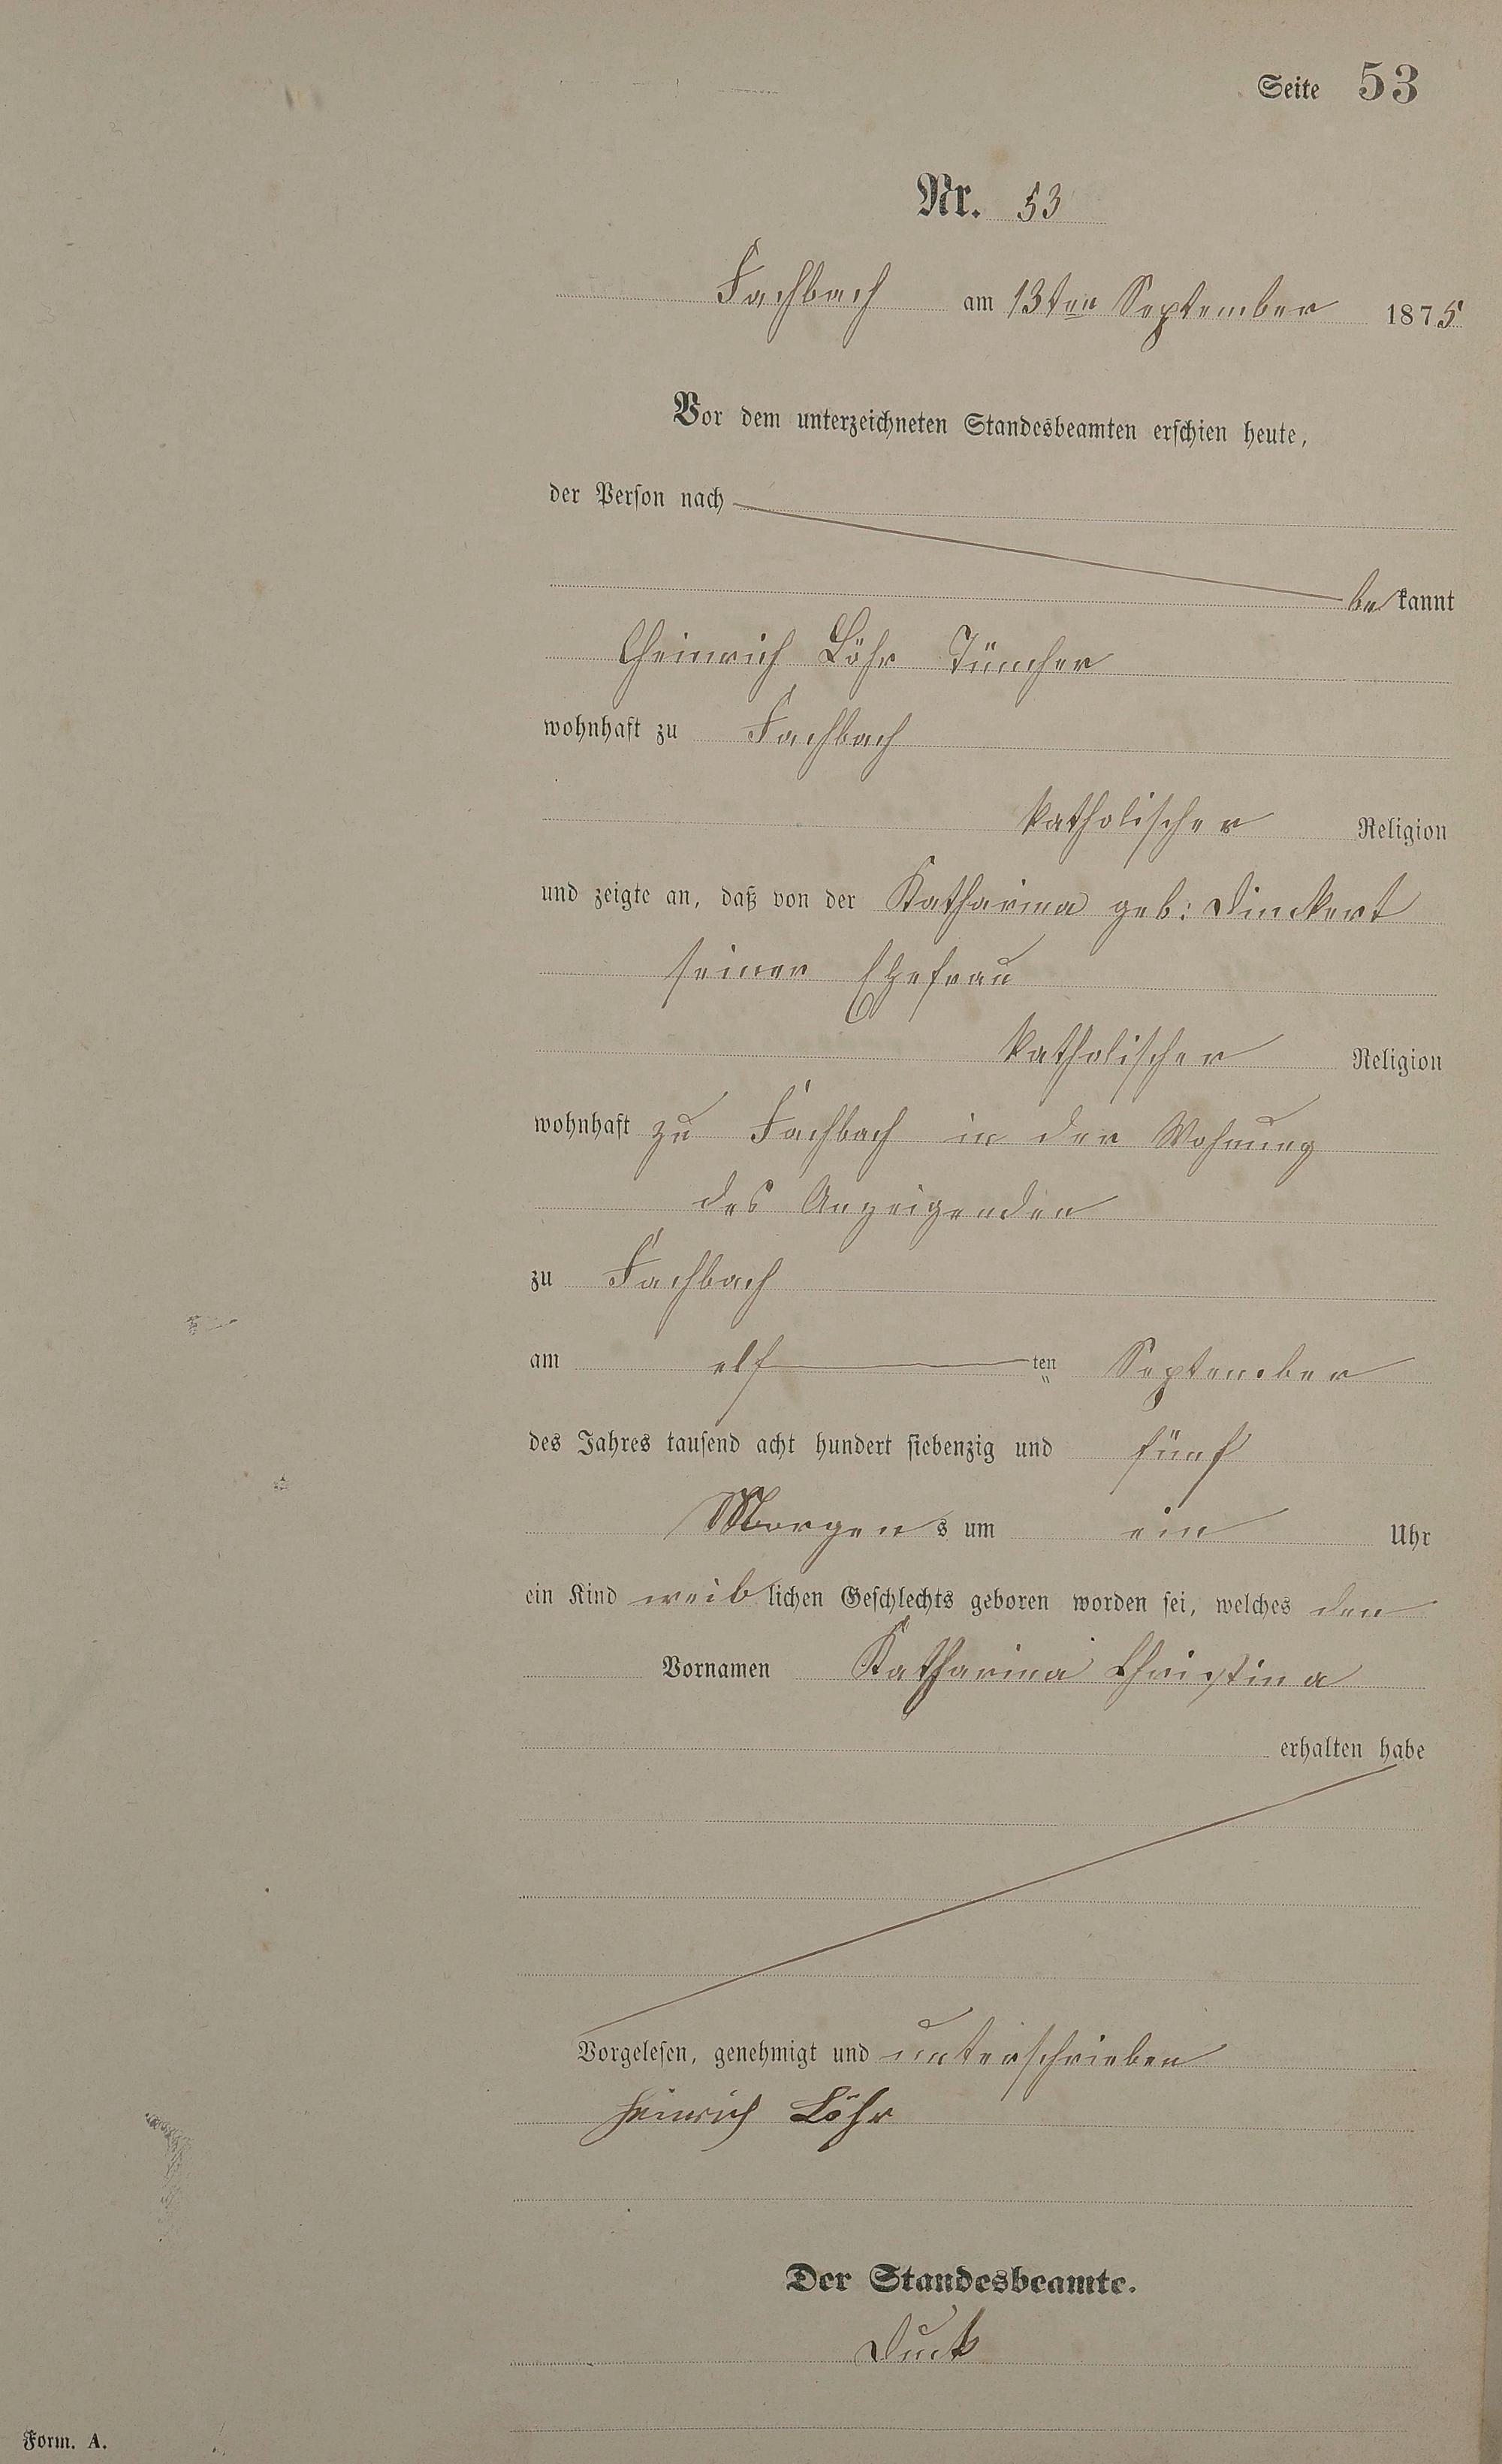 Seite 53
Nr. 53
Fachbach am 13ten September 1875
Vor dem unterzeichneten Standesbeamten erschien heute,
der Person nach
bekannt
Heinrich Löhr Tüncher
wohnhaft zu Fachbach
katholischer Religion
und zeigte an, daß von der Katharina geb: Dinckert
seiner Ehefrau
katholischer Religion
wohnhaft zu Fachbach in der Wohnung
des Anzeigenden
zu Fachbach
am elf ten September
des Jahres tausend acht hundert siebenzig und fünf
Morgens um ein Uhr
ein Kind weiblichen Geschlechts geboren worden sei, welches den
Vornamen Katharina Christina
erhalten habe
Vorgelesen, genehmigt und unterschrieben
Heinrich Löhr
Der Standesbeamte.
Form. A.